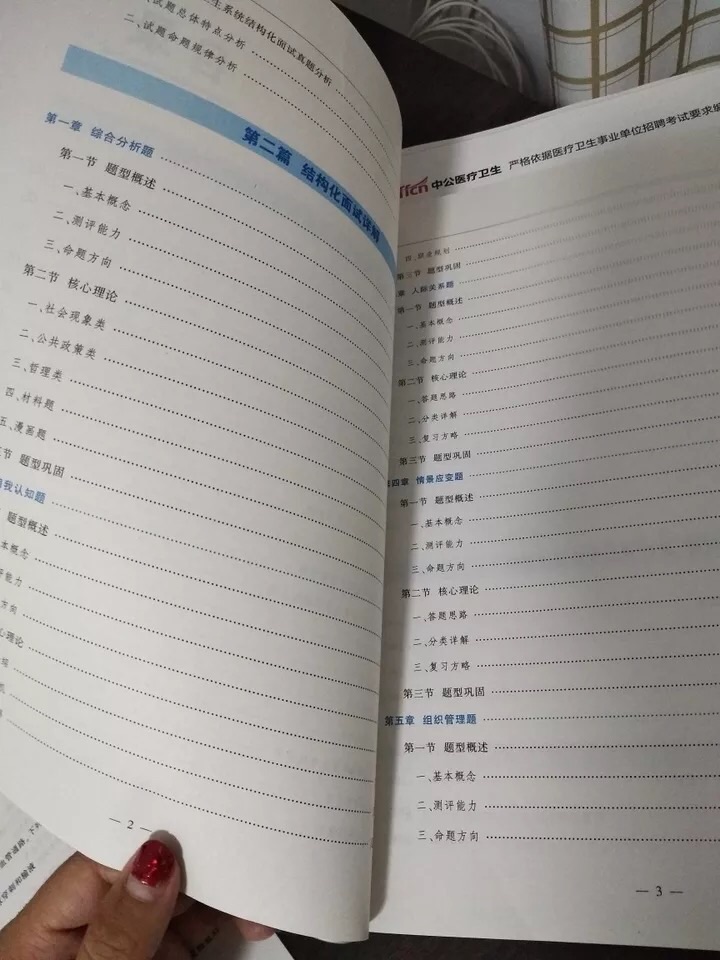 生系统结构化面试真题分析
试题总体特点分析
二、试题命题规律分析
第二篇 结构化面试详解
第一章 综合分析题
第一节 题型概述
一、基本概念
二、测评能力
三、命题方向
第二节 核心理论
一、社会现象类
二、公共政策类
三、哲理类
四、材料题
五、漫画题
节 题型巩固
我认知题
题型概述
本概念
能力
方向
心理论
— 2 —
中公医疗卫生 严格依据医疗卫生事业单位招聘考试要求编
第三节 题型巩固
章 人际关系题
第一节 题型概述
一、基本概念
二、测评能力
三、命题方向
第二节 核心理论
一、答题思路
二、分类详解
三、复习方略
第三节 题型巩固
第四章 情景应变题
第一节 题型概述
一、基本概念
二、测评能力
三、命题方向
第二节 核心理论
一、答题思路
二、分类详解
三、复习方略
第三节 题型巩固
第五章 组织管理题
第一节 题型概述
一、基本概念
二、测评能力
三、命题方向
— 3 —